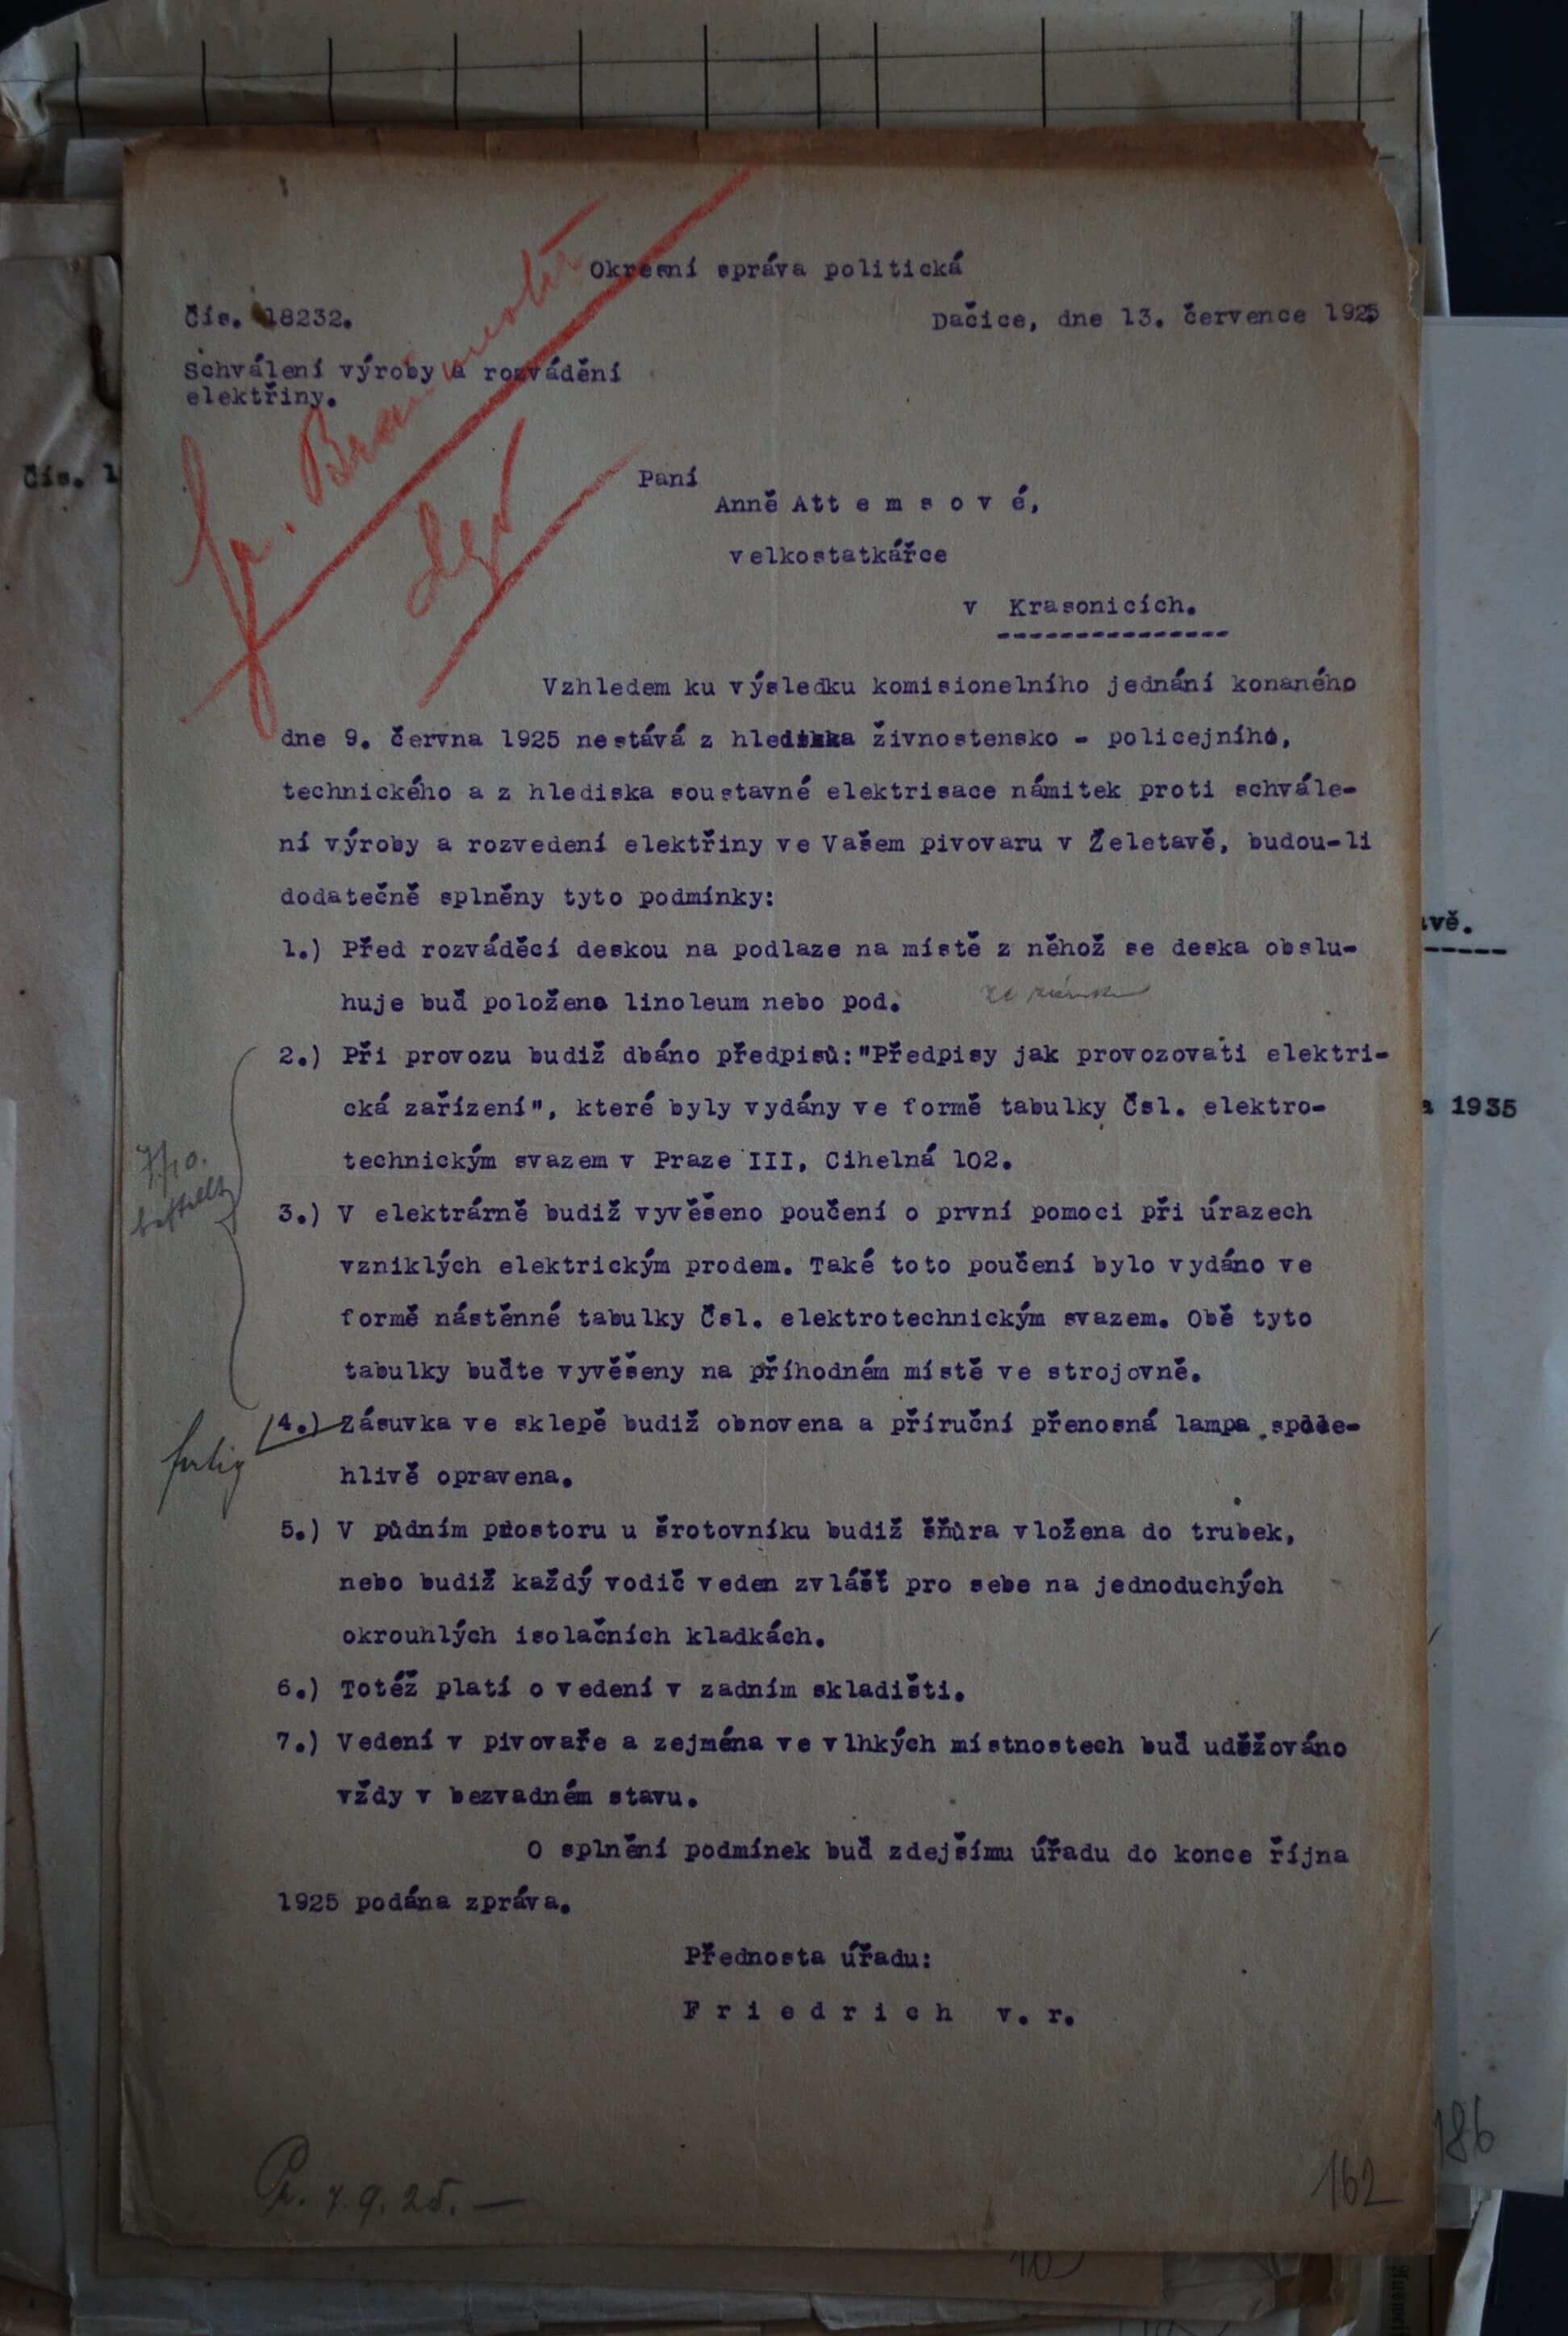 Okresní správa politická
Čís. 18232.
Dačice, dne 13. července 1925
Schválení výroby a rozvádění
elektřiny.
Čís. 1
Paní
Anně Att e m s o v é,
velkostatkářce
v Krasonicích.
Vzhledem ku výsledku komisionelního jednání konaného
dne 9. června 1925 nestává z hlediska živnostensko - policejního,
technického a z hlediska soustavné elektrisace námitek proti schvále-
ní výroby a rozvedení elektřiny ve Vašem pivovaru v Želetavě, budou-li
dodatečně splněny tyto podmínky:
1.) Před rozváděcí deskou na podlaze na místě z něhož se deska obslu-
huje buď položeno linoleum nebo pod.
2.) Při provozu budiž dbáno předpisů:"Předpisy jak provozovati elektri-
cká zařízení", které byly vydány ve formě tabulky Čsl. elektro-
technickým svazem v Praze III, Cihelná 102.
3.) V elektrárně budiž vyvěšeno poučení o první pomoci při úrazech
vzniklých elektrickým prodem. Také toto poučení bylo vydáno ve
formě nástěnné tabulky Čsl. elektrotechnickým svazem. Obě tyto
tabulky buďte vyvěšeny na příhodném místě ve strojovně.
4.) Zásuvka ve sklepě budiž obnovena a příruční přenosná lampa spole-
hlivě opravena.
fertig
5.) V půdním prostoru u šrotovníku budiž šňůra vložena do trubek,
nebo budiž každý vodič veden zvlášť pro sebe na jednoduchých
okrouhlých isolačních kladkách.
6.) Totéž platí o vedení v zadním skladišti.
7.) Vedení v pivovaře a zejména ve vlhkých místnostech buď uděžováno
vždy v bezvadném stavu.
O splnění podmínek buď zdejšímu úřadu do konce října
1925 podána zpráva.
Přednosta úřadu:
F r i e d r i c h v. r.
7.9.25.—
162
vě.
1935
186